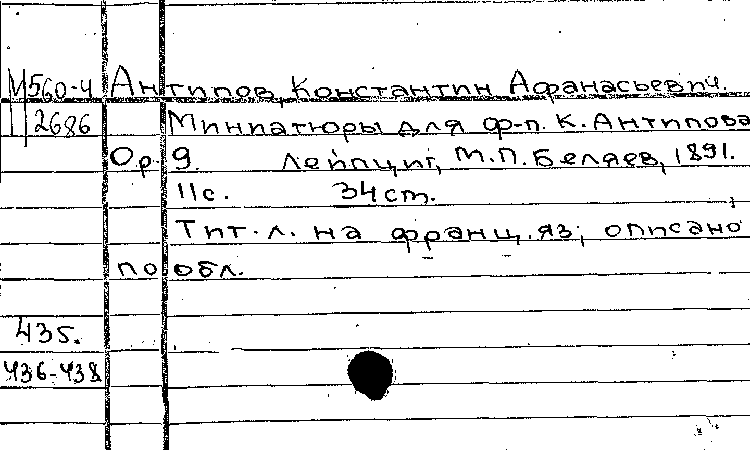 М560-4 Антипов, Константин Афанасьевич.
2686 Миниатюры для ф-п. К. Антипова
Op. 9. Лейпциг, М.П. Беляев, 1891.
11с. 34см.
Тит. л. на франц. яз; описано
по обл.
435.
436-438